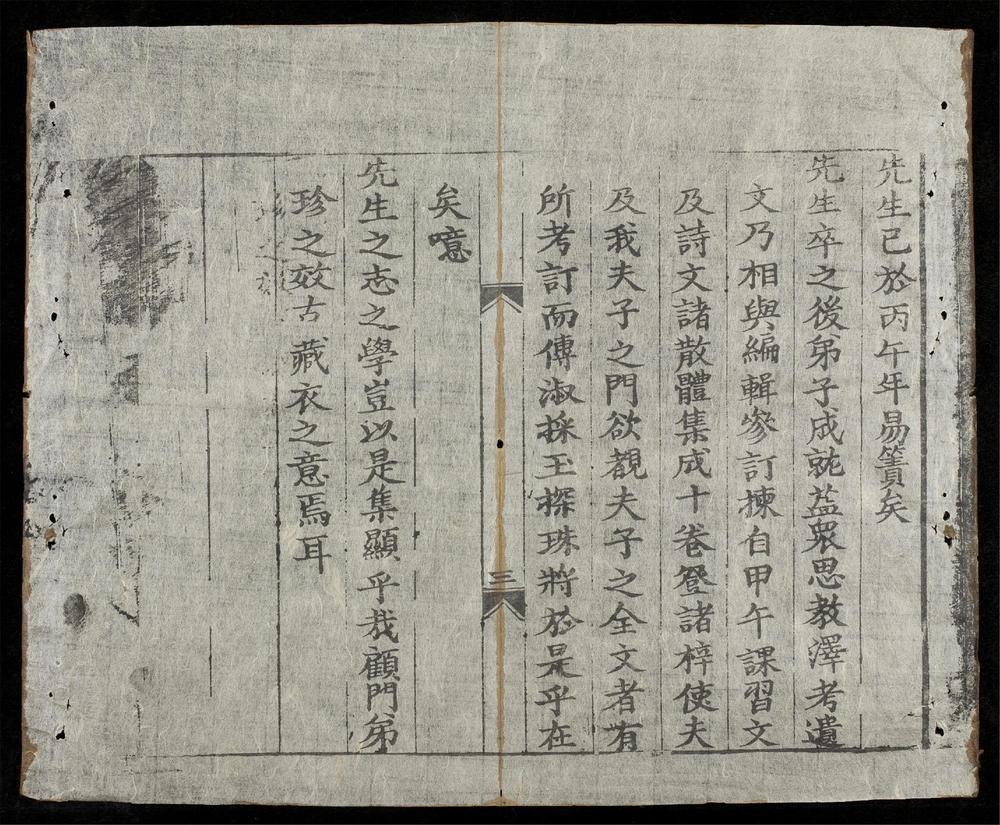 先生已於丙午年易簀矣
先生卒之後弟子成就益衆思教澤考遺
文乃相與編輯參訂揀自甲午課習文
及詩文諸散體集成十卷登諸梓使夫
及我夫子之門欲覩夫子之全文者有
所考訂而傳淑採玉探珠將於是乎在
三
矣噫
先生之志之學豈以是集顯乎哉顧門弟
珍之效古藏衣之意焉耳